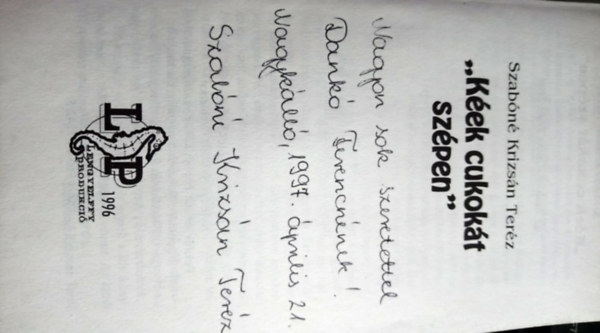 Szabóné Krizsán Teréz
„Kéek cukokát
szépen”
Nagyon sok szeretettel
Dankó Terencnének!
Nagykálló, 1997. április 21.
Szabóné Krizsán Teréz
LP
1996
LENGYELFFY
PRODUKCIÓ